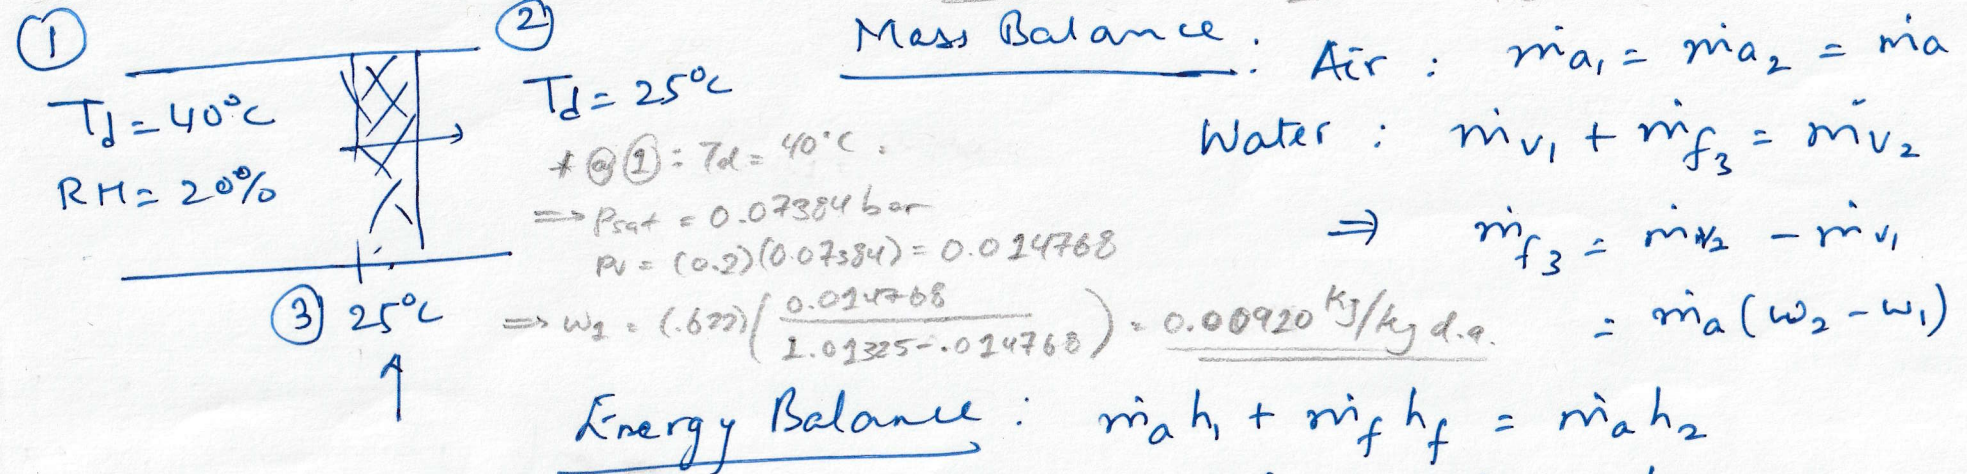 ①
T_d = 40°C
RH = 20%
③ 25°C
②
T_d = 25°C
* @ ① : Td = 40°C.
⇒ Psat = 0.07384 bar
Pv = (0.2)(0.07384) = 0.014768
⇒ w₁ = (.622)(0.014768 / 1.01325-.014768) = 0.00920 KJ/kg d.a.
Mass Balance : Air : ṁa₁ = ṁa₂ = ṁa
Water : ṁv₁ + ṁf₃ = ṁv₂
⇒ ṁf₃ = ṁv₂ - ṁv₁
= ṁa (ω₂ - ω₁)
Energy Balance : ṁa h₁ + ṁf hf = ṁa h₂